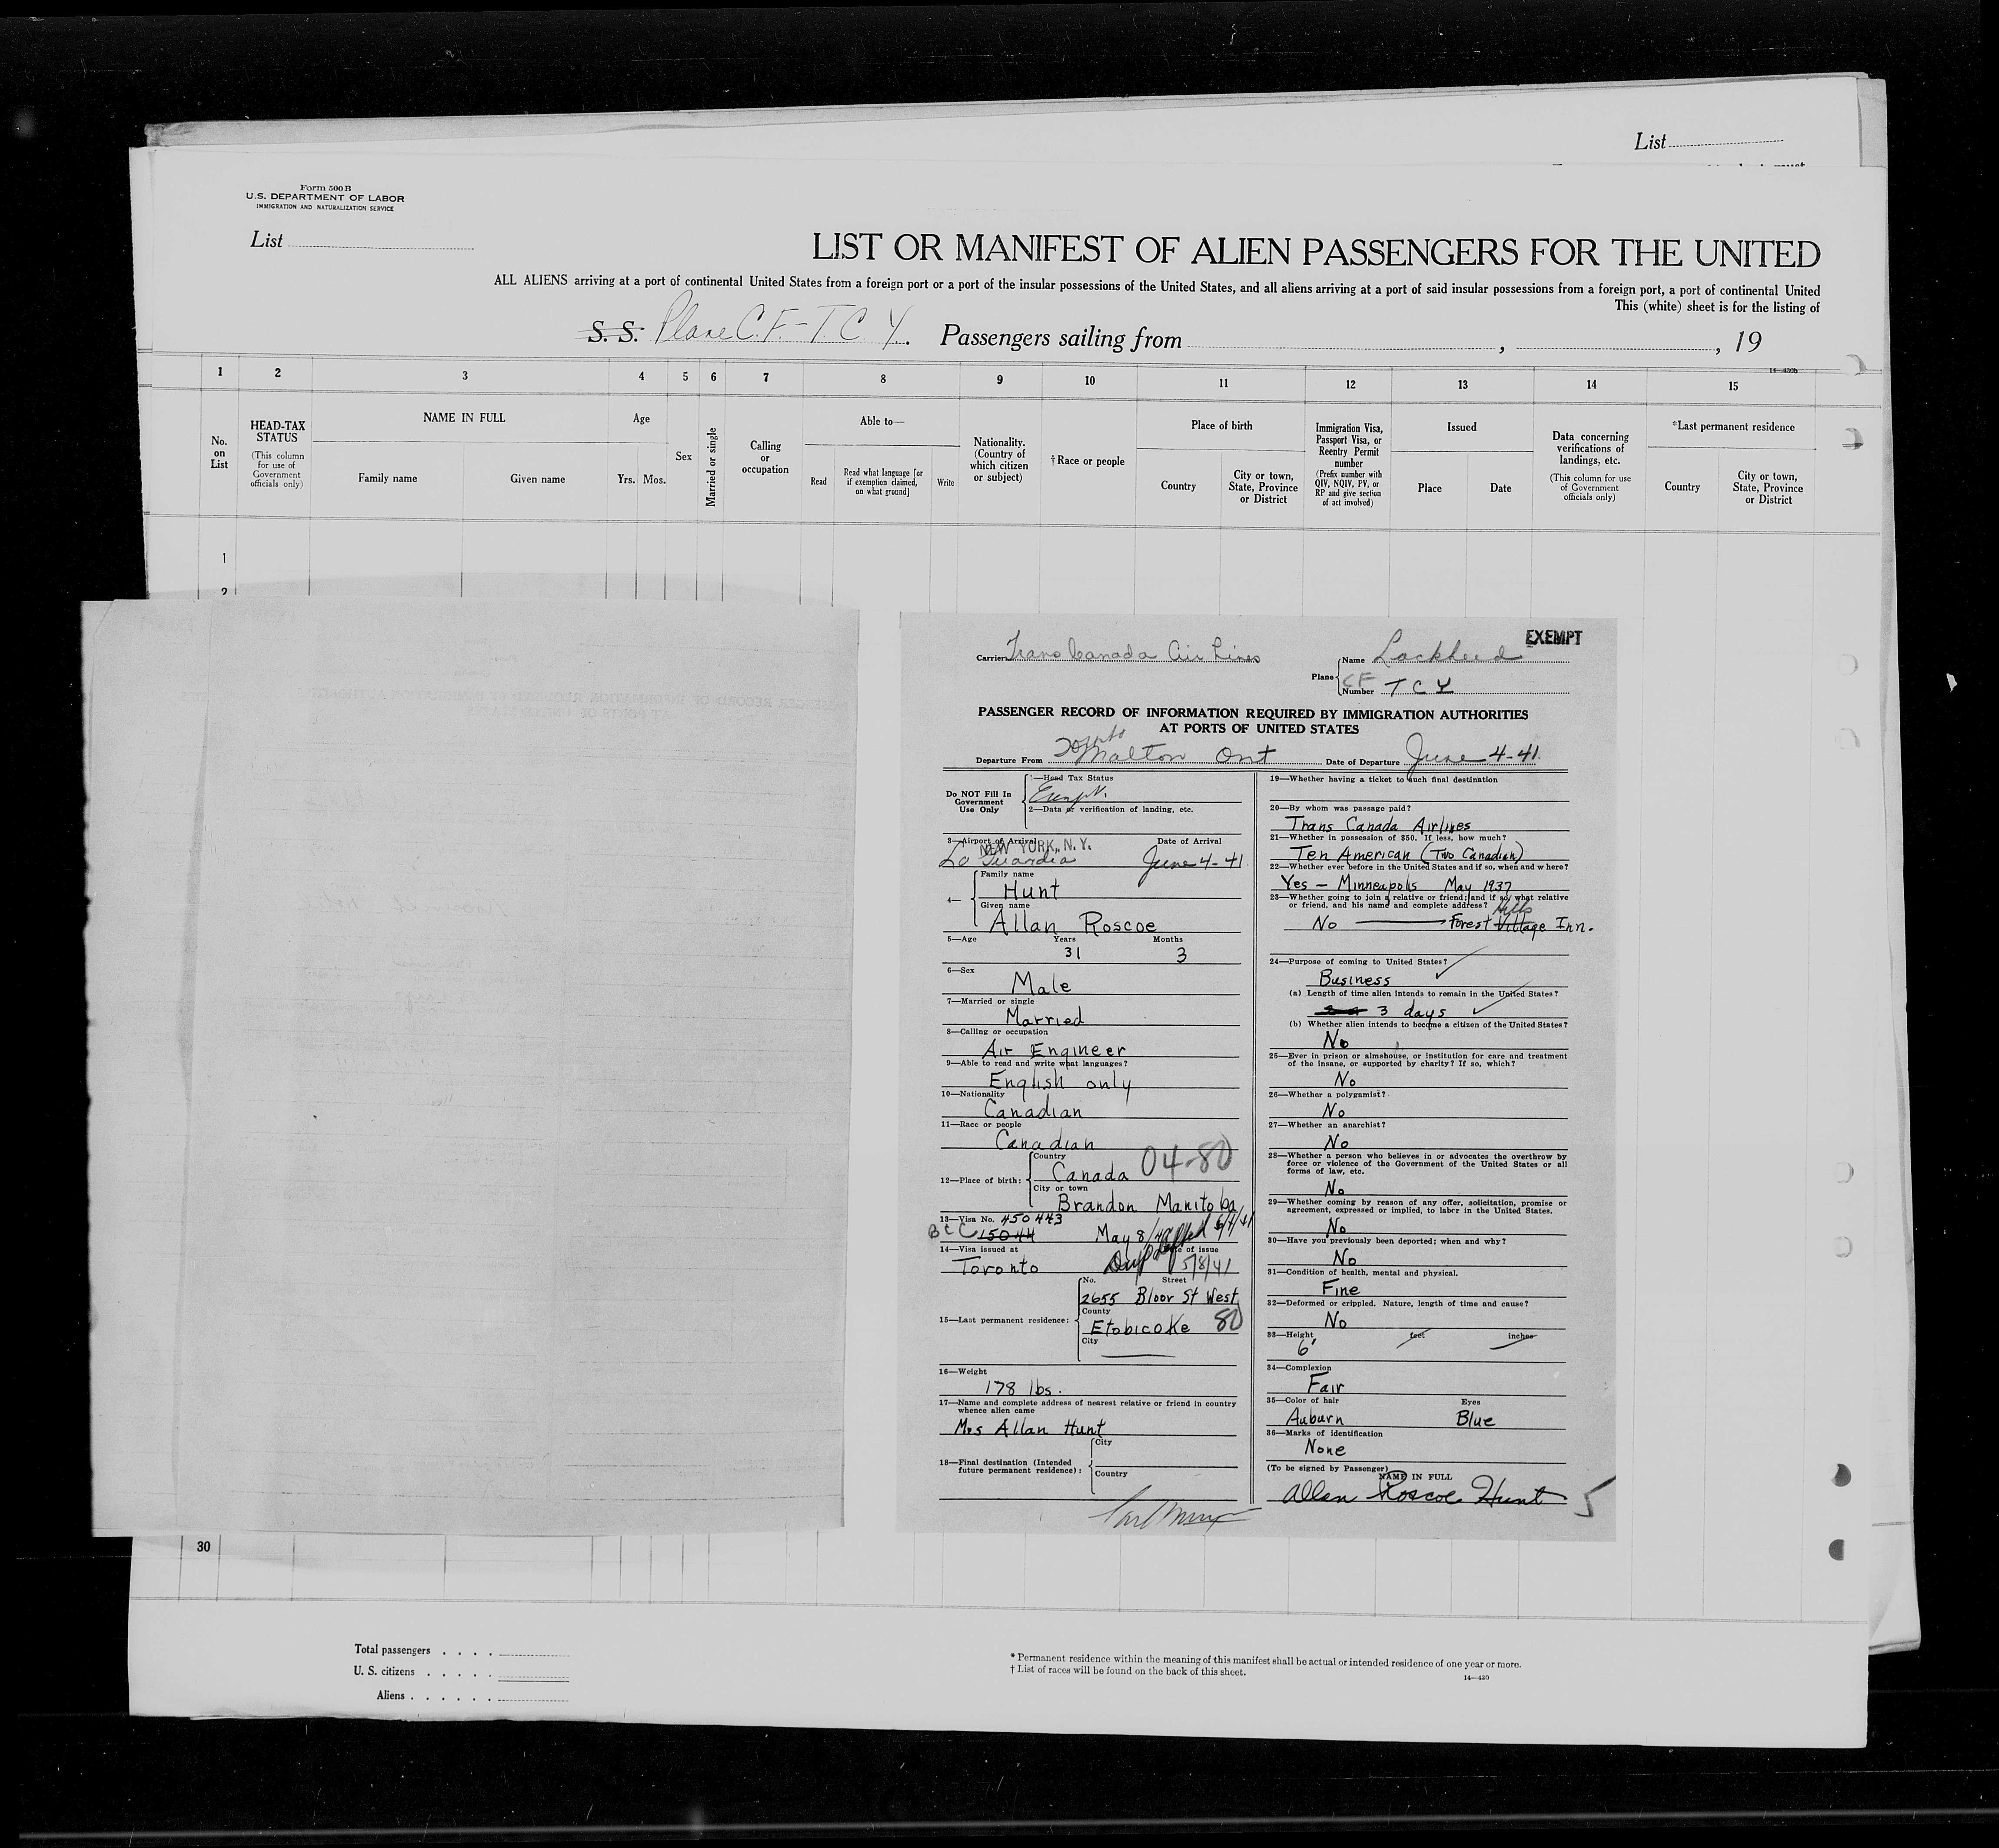 List
Form 500 B
U.S. DEPARTMENT OF LABOR
IMMIGRATION AND NATURALIZATION SERVICE
List
LIST OR MANIFEST OF ALIEN PASSENGERS FOR THE UNITED
ALL ALIENS arriving at a port of continental United States from a foreign port or a port of the insular possessions of the United States, and all aliens arriving at a port of said insular possessions from a foreign port, a port of continental United
This (white) sheet is for the listing of
S. S. Plane C.F.-T C Y. Passengers sailing from , , 19
1 2 3 4 5 6 7 8 9 10 11 12 13 14 15
No. on List
HEAD-TAX STATUS
(This column for use of Government officials only)
NAME IN FULL
Family name Given name
Age
Yrs. Mos.
Sex
Married or single
Calling or occupation
Able to—
Read
Read what language [or if exemption claimed, on what ground]
Write
Nationality. (Country of which citizen or subject)
†Race or people
Place of birth
Country
City or town, State, Province or District
Immigration Visa, Passport Visa, or Reentry Permit number
(Prefix number with QIV, NQIV, PV, or RP and give section of act involved)
Issued
Place Date
Data concerning verifications of landings, etc.
(This column for use of Government officials only)
*Last permanent residence
Country
City or town, State, Province or District
1
2
EXEMPT
Carrier Trans Canada Air Lines
Plane Name Lockheed
CF
Number T C Y
PASSENGER RECORD OF INFORMATION REQUIRED BY IMMIGRATION AUTHORITIES
AT PORTS OF UNITED STATES
Departure From Malton Ont Date of Departure June 4-41
Do NOT Fill In Government Use Only
1—Head Tax Status
Exempt
2—Data or verification of landing, etc.
3—Airport of Arrival Date of Arrival
NEW YORK, N. Y.
La Guardia June 4-41
4—
Family name
Hunt
Given name
Allan Roscoe
5—Age Years Months
31 3
6—Sex
Male
7—Married or single
Married
8—Calling or occupation
Air Engineer
9—Able to read and write what languages?
English only
10—Nationality
Canadian
11—Race or people
Canadian
12—Place of birth:
Country
Canada 04-80
City or town
Brandon Manitoba
13—Visa No. 450443
BCC 15044 May 8/41
14—Visa issued at Date of issue
Toronto 5/8/41
15—Last permanent residence:
No. Street
2655 Bloor St West
County
Etobicoke 80
City
16—Weight
178 lbs.
17—Name and complete address of nearest relative or friend in country
whence alien came
Mrs Allan Hunt
18—Final destination (Intended
future permanent residence):
City
Country
19—Whether having a ticket to such final destination
20—By whom was passage paid?
Trans Canada Airlines
21—Whether in possession of $50. If less, how much?
Ten American (Two Canadian)
22—Whether ever before in the United States and if so, when and where?
Yes — Minneapolis May 1937
23—Whether going to join a relative or friend; and if so, what relative
or friend, and his name and complete address?
Hills
No Forest Village Inn.
24—Purpose of coming to United States?
Business
(a) Length of time alien intends to remain in the United States?
3 days
(b) Whether alien intends to become a citizen of the United States?
No
25—Ever in prison or almshouse, or institution for care and treatment
of the insane, or supported by charity? If so, which?
No
26—Whether a polygamist?
No
27—Whether an anarchist?
No
28—Whether a person who believes in or advocates the overthrow by
force or violence of the Government of the United States or all
forms of law, etc.
No
29—Whether coming by reason of any offer, solicitation, promise or
agreement, expressed or implied, to labor in the United States.
No
30—Have you previously been deported; when and why?
No
31—Condition of health, mental and physical.
Fine
32—Deformed or crippled. Nature, length of time and cause?
No
33—Height feet inches
6'
34—Complexion
Fair
35—Color of hair Eyes
Auburn Blue
36—Marks of identification
None
(To be signed by Passenger)
NAME IN FULL
Allan Roscoe Hunt
30
Total passengers
U. S. citizens
Aliens
* Permanent residence within the meaning of this manifest shall be actual or intended residence of one year or more.
† List of races will be found on the back of this sheet.
14—420